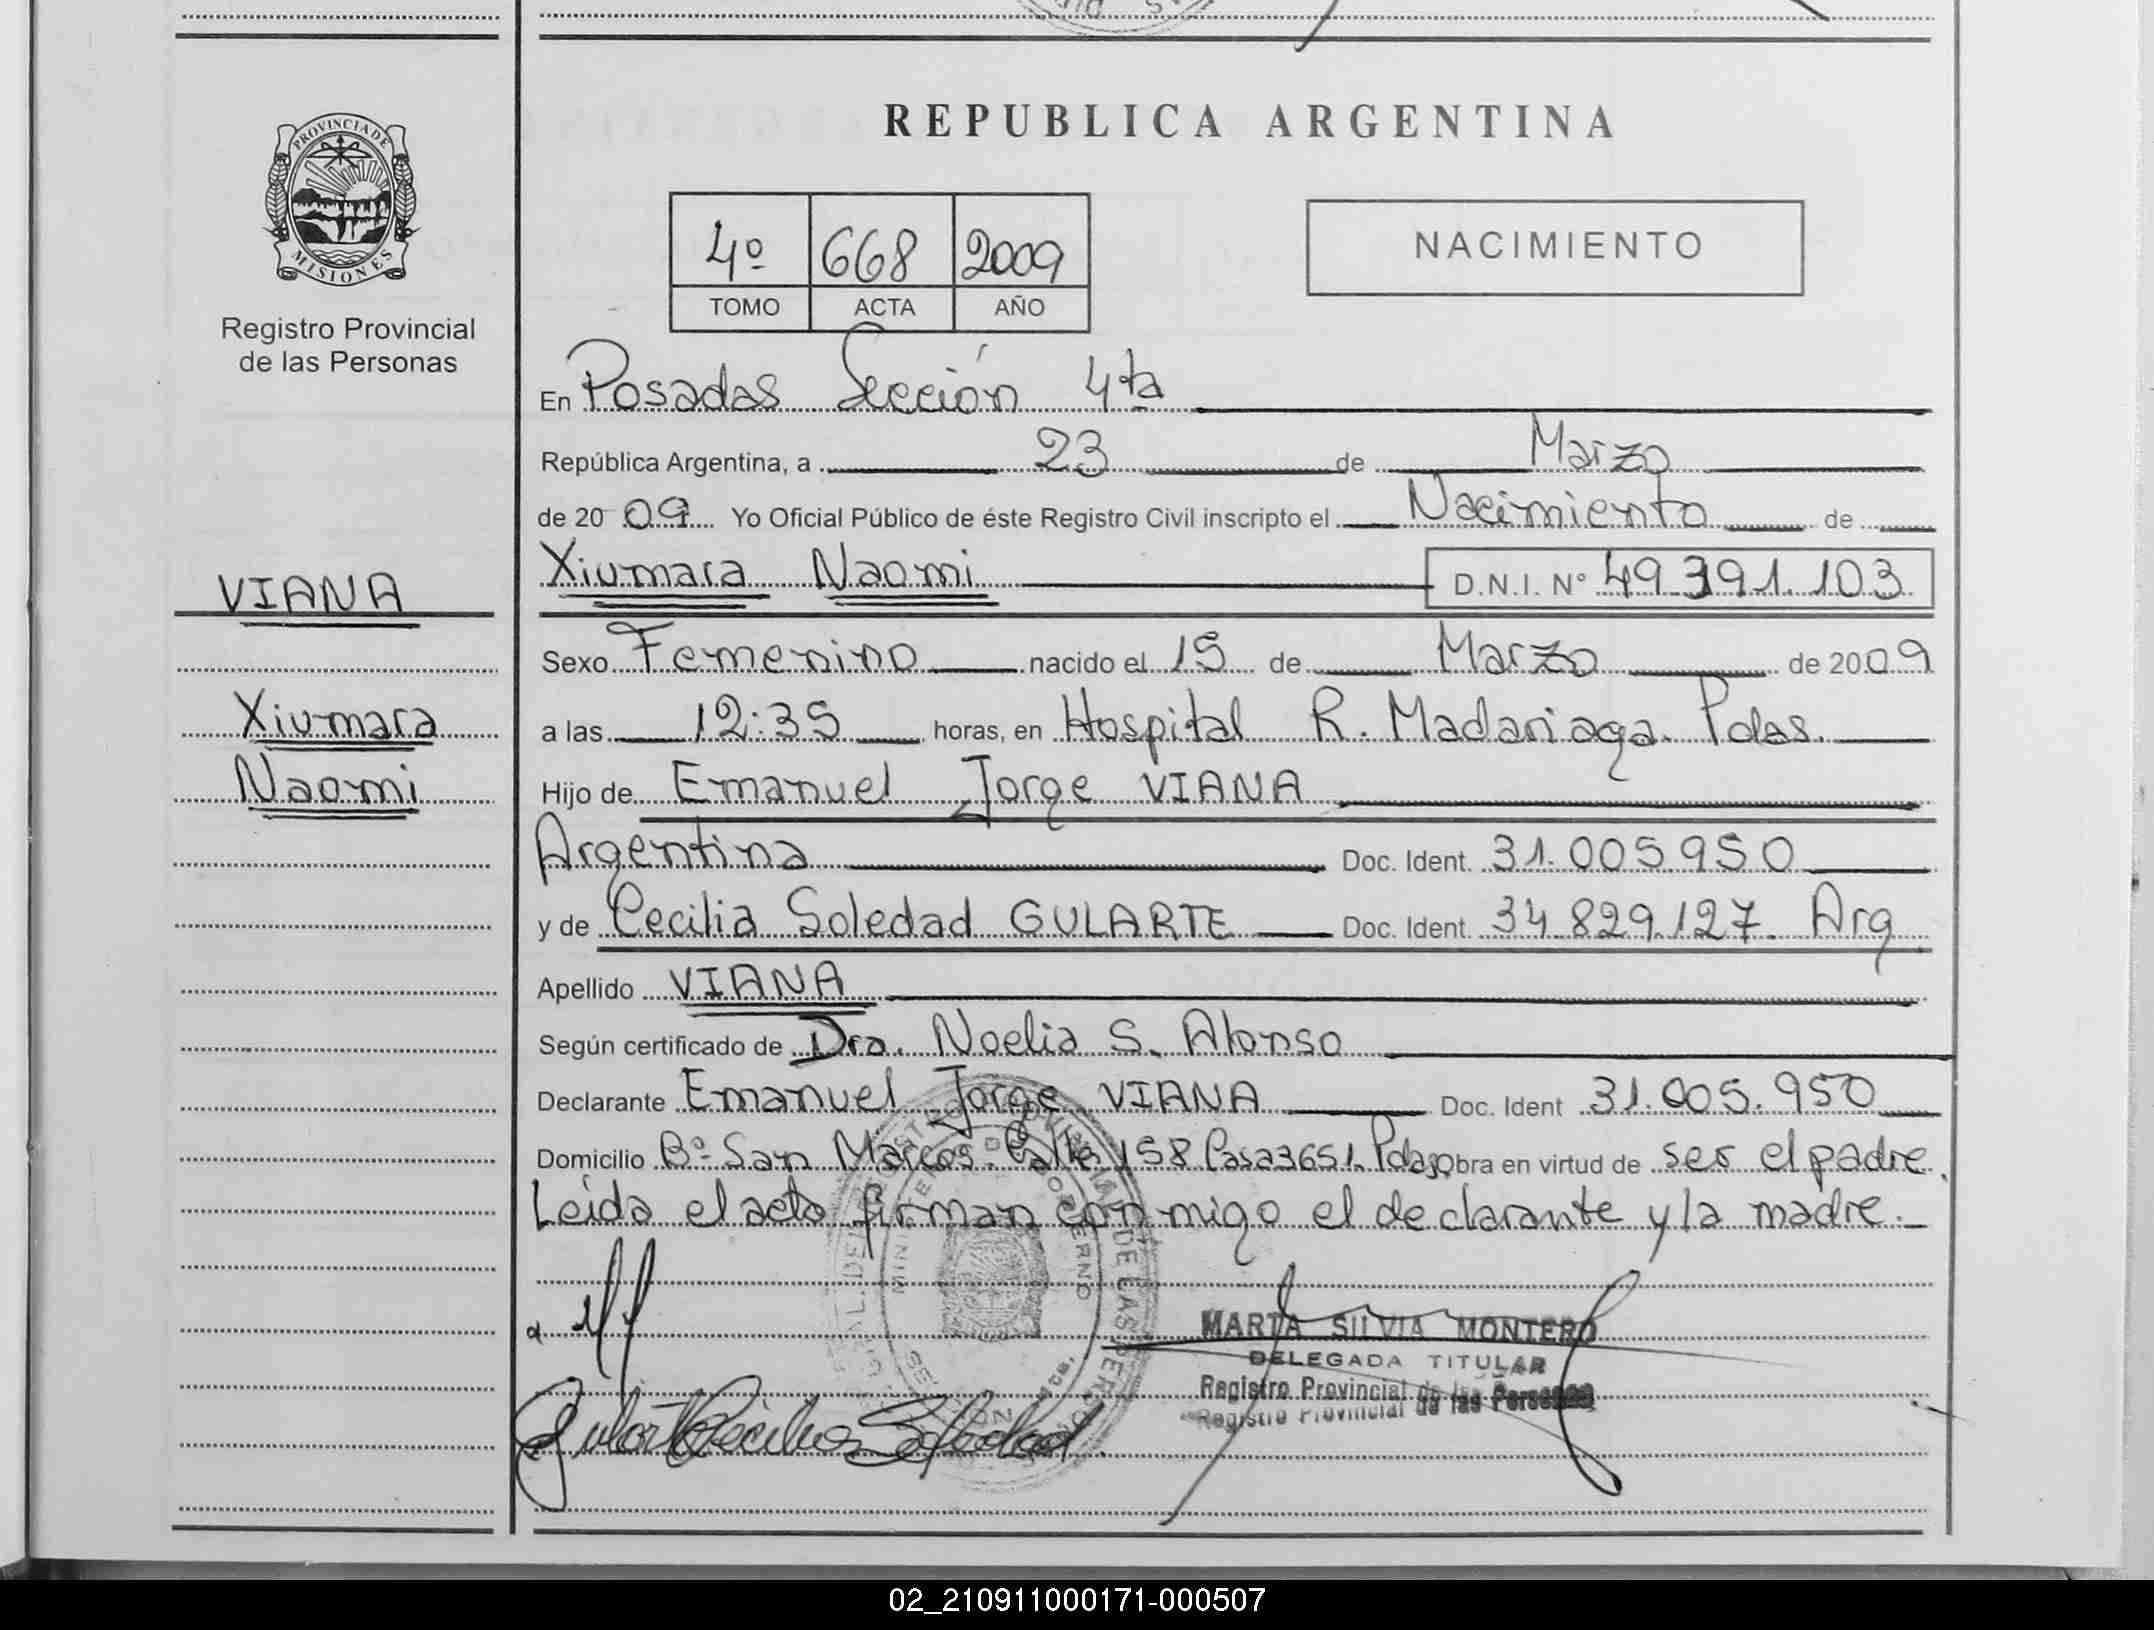 REPUBLICA ARGENTINA
PROVINCIA DE
MISIONES
Registro Provincial
de las Personas
4º 668 2009
TOMO ACTA AÑO
NACIMIENTO
En Posadas Sección 4ta
República Argentina, a 23 de Marzo
de 2009 Yo Oficial Público de éste Registro Civil inscripto el Nacimiento de
VIANA
Xiumara Naomi D.N.I. Nº 49.391.103
Sexo Femenino nacido el 15 de Marzo de 2009
Xiumara
a las 12:35 horas, en Hospital R. Madariaga. Pdas.
Naomi
Hijo de Emanuel Jorge VIANA
Argentina Doc. Ident. 31.005950
y de Cecilia Soledad GULARTE Doc. Ident. 34.829.127. Arg
Apellido VIANA
Según certificado de Dra. Noelia S. Alonso
Declarante Emanuel Jorge VIANA Doc. Ident 31.005.950
Domicilio Bº San Marcos. Calle 158 Casa 3651. Pdas obra en virtud de ser el padre.
Leida el acto firman conmigo el declarante y la madre.
MARTA SILVIA MONTERO
DELEGADA TITULAR
Registro Provincial de las Personas
Registro Provincial de las Personas
Gularte Cecilia Soledad
02_210911000171-000507